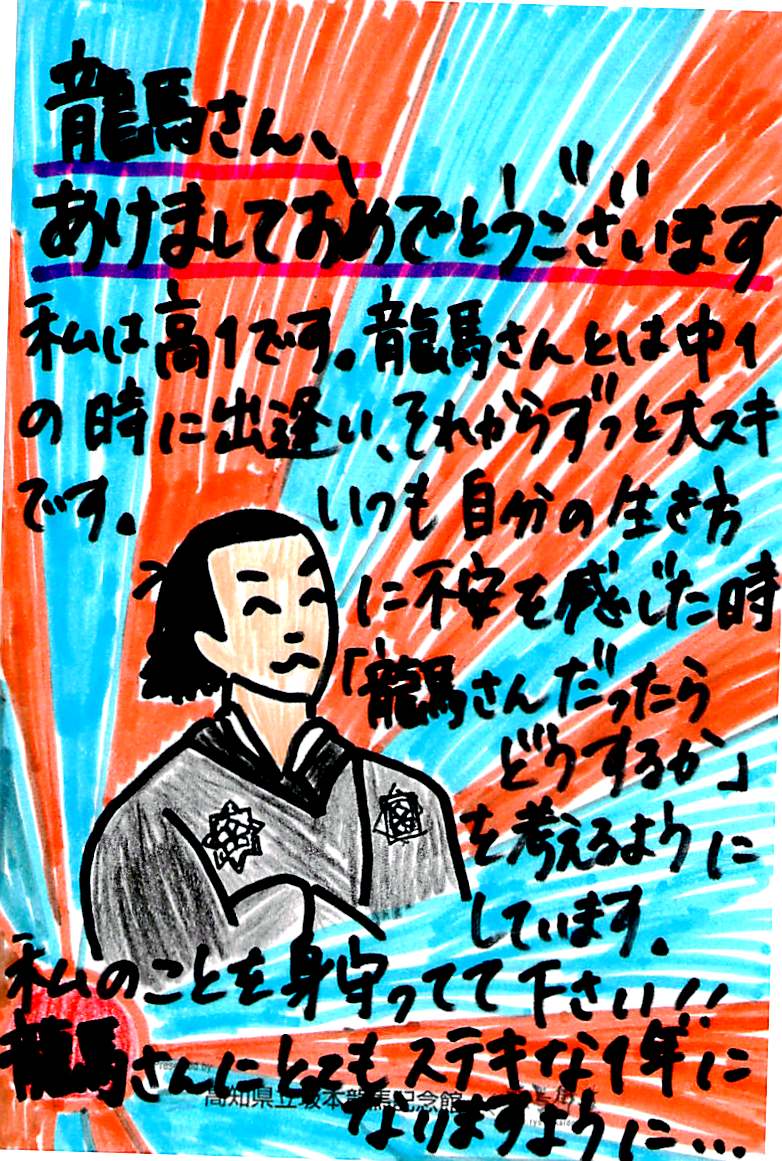 龍馬さん、
あけましておめでとうございます
私は高1です。龍馬さんとは中1
の時に出逢い、それからずっと大スキ
です。いつも自分の生き方
に不安を感じた時
「龍馬さんだったら
どうするか」
を考えるように
しています。
私のことを身守ってて下さい!!
龍馬さんにとてもステキな1年に
Presented by
高知県立坂本龍馬記念館
なりますように…